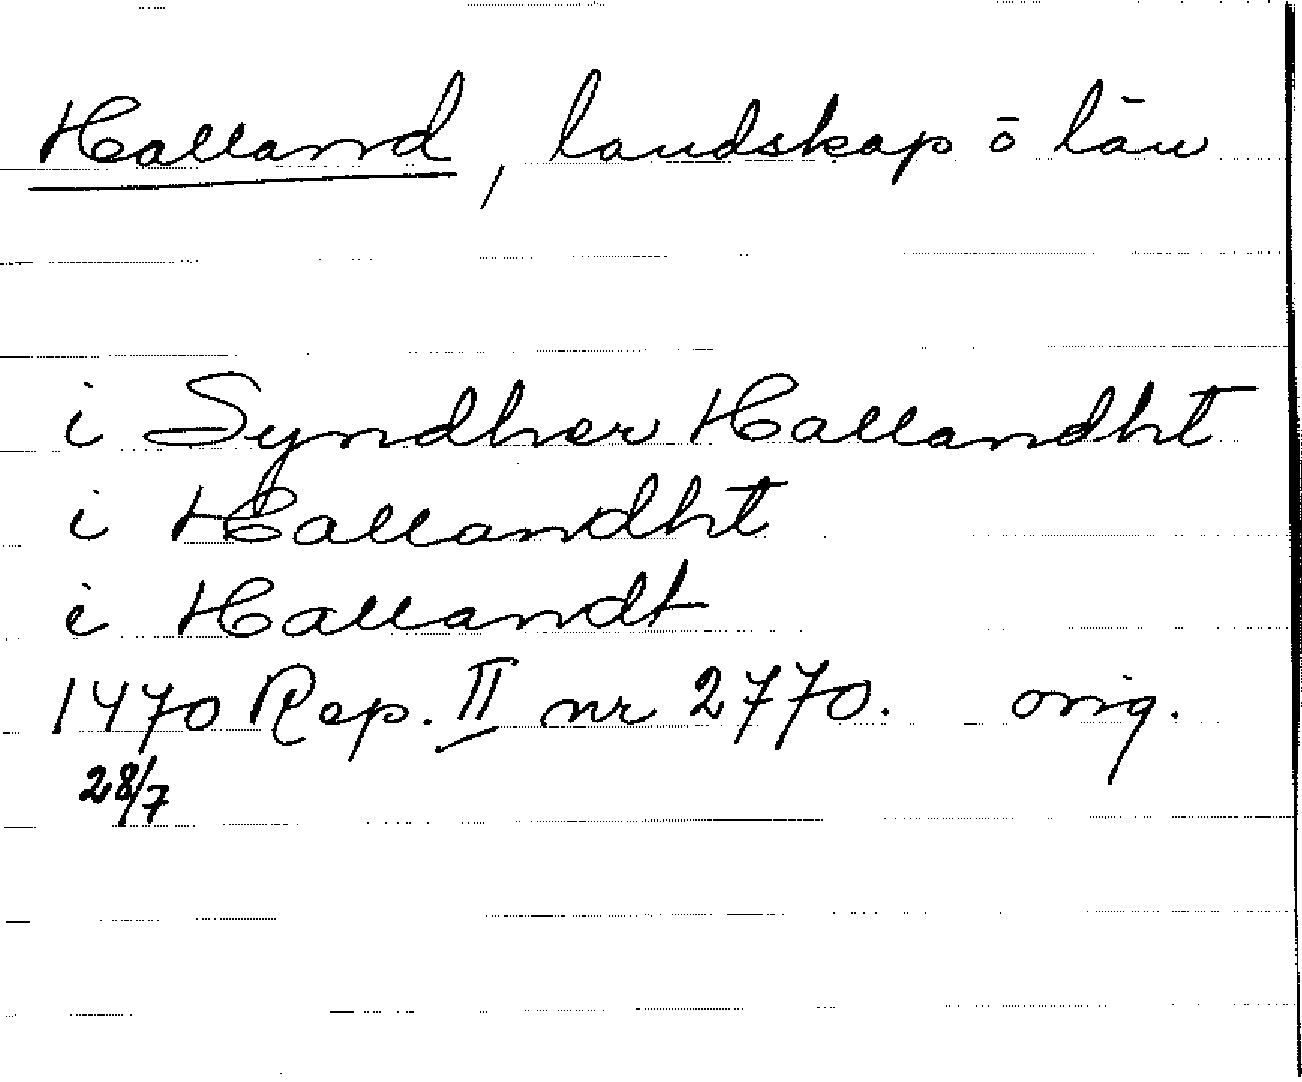 Halland, landskap ō län
i Syndher Hallandht
i Hallandht
i Hallandt
1470 Rep. II nr 2770. orig.
28/7